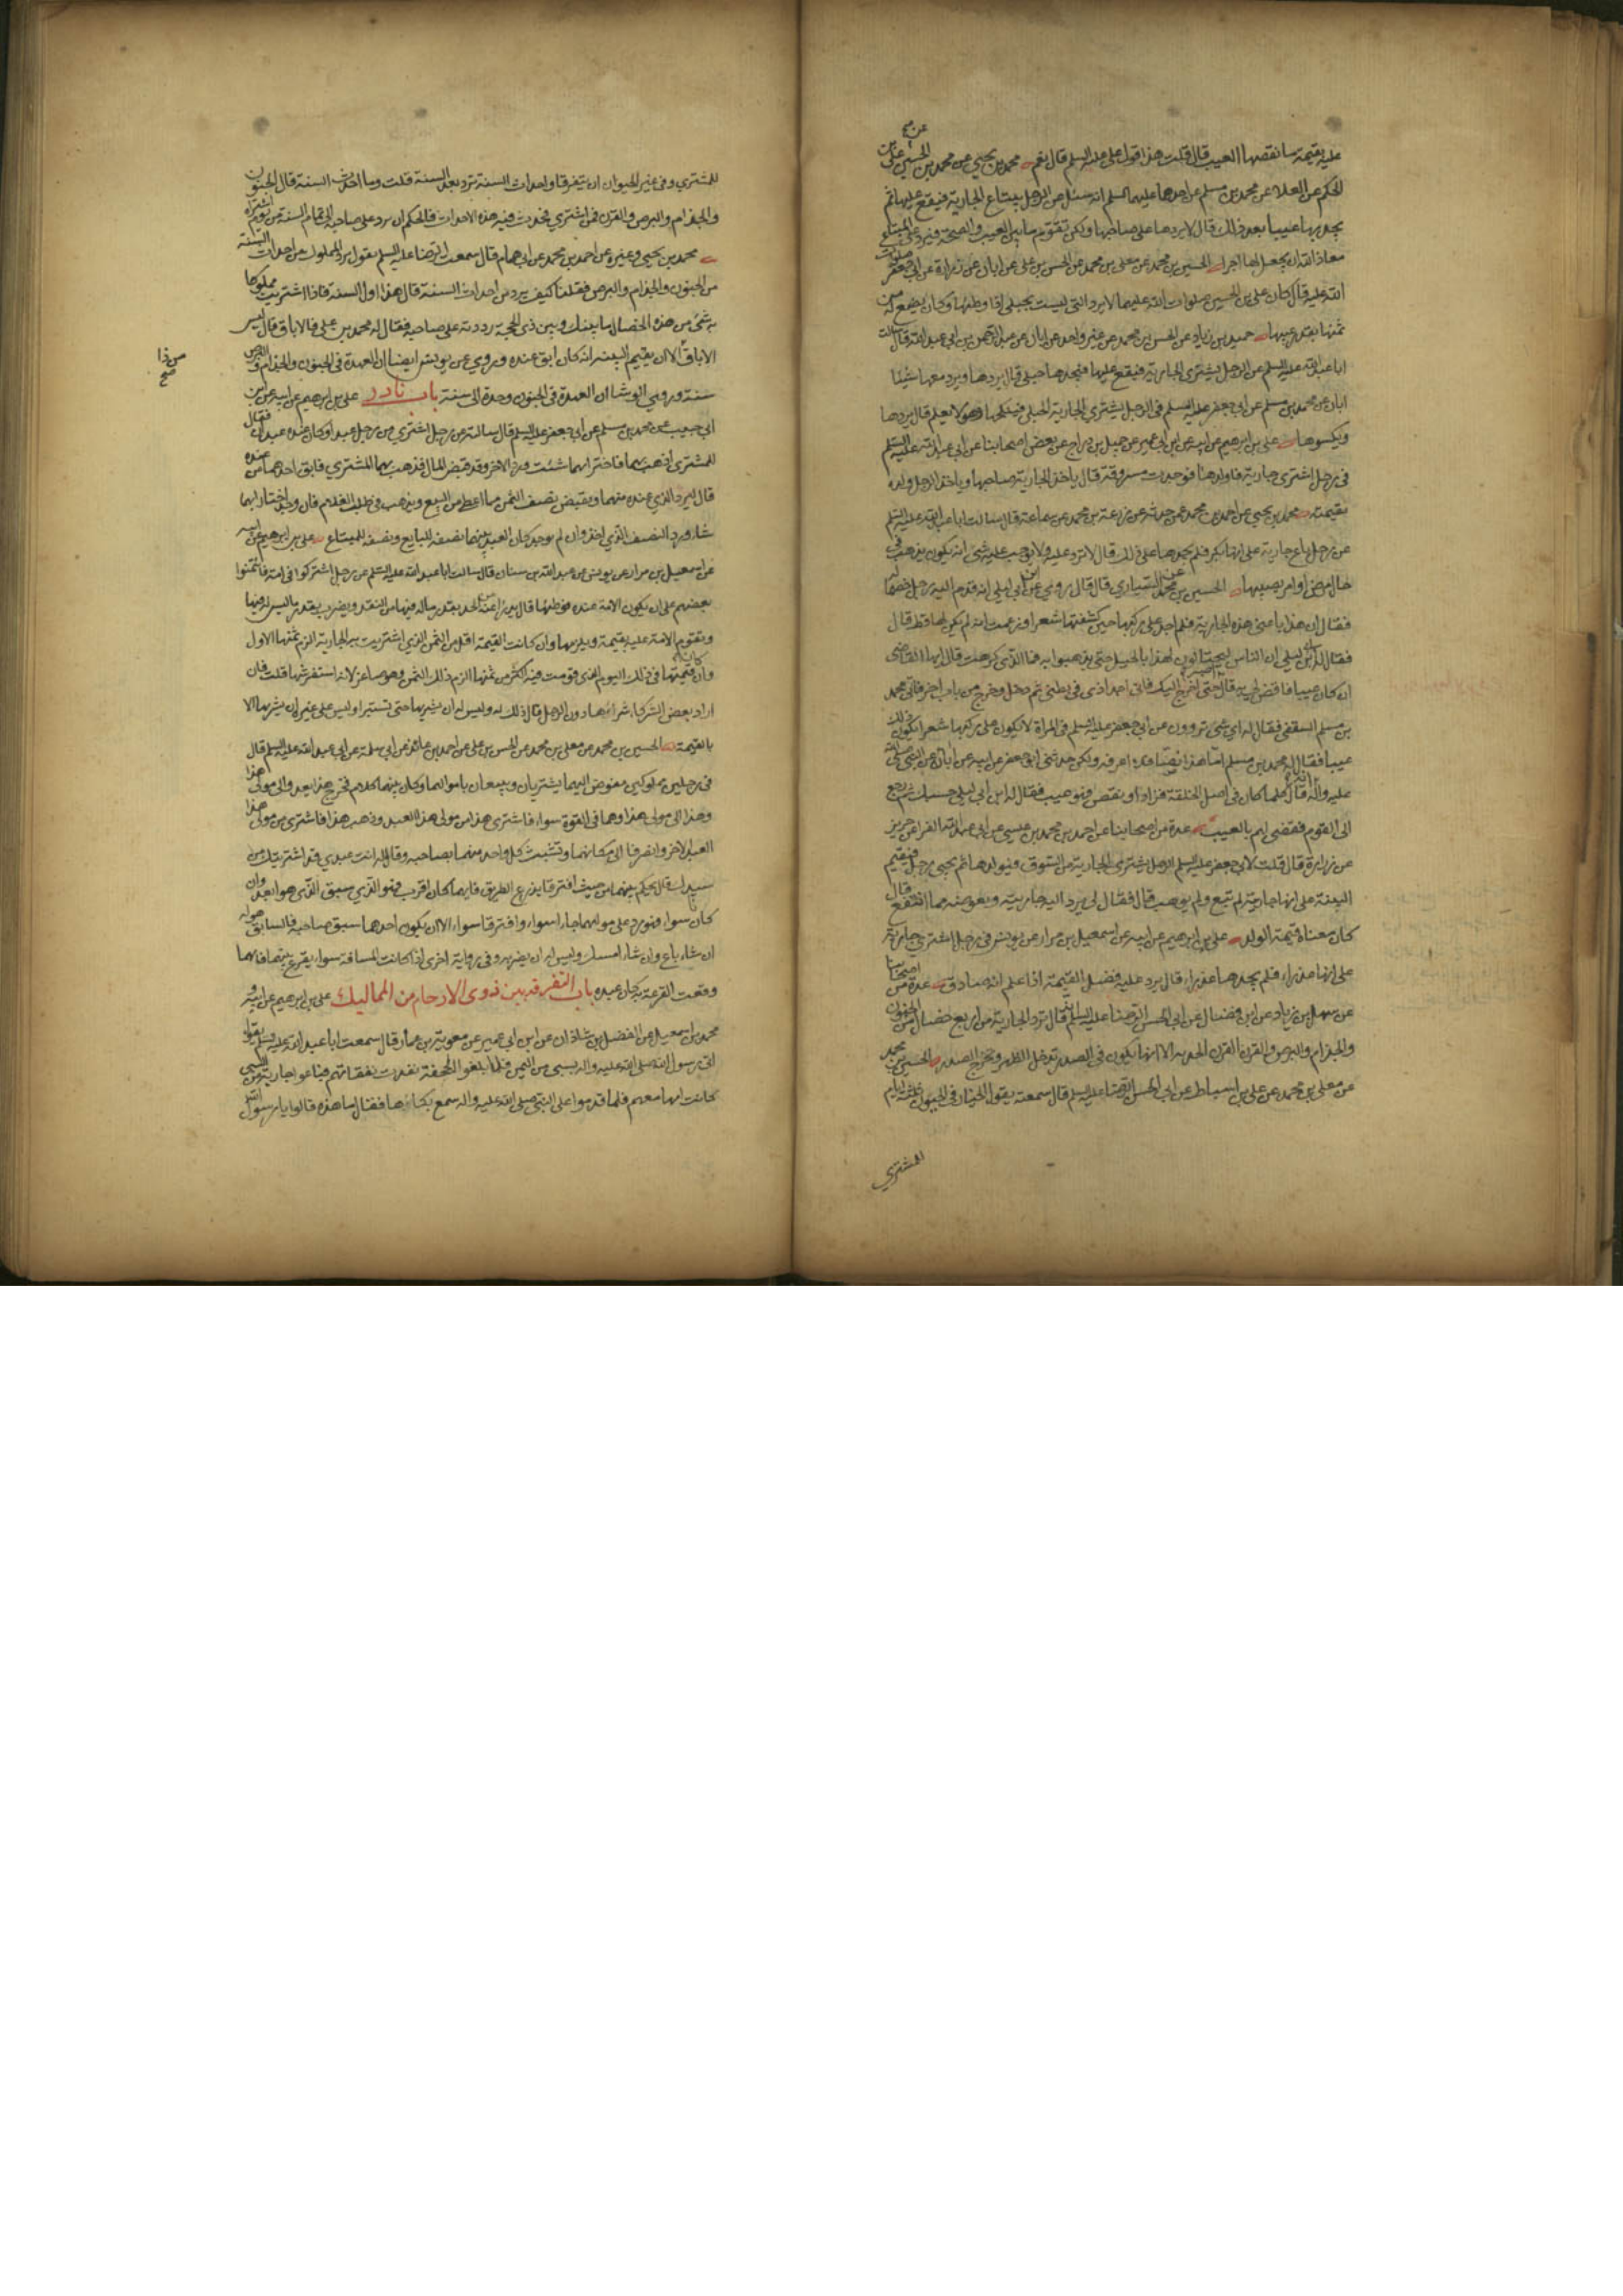 عليه بقيمة ما نقصها العيب قال قلت هذا قول علي عليه السلم قال نعم محمد بن يحيى عن محمد بن الحسين عن علي بن
الحكم عن العلا عن محمد بن مسلم عن احدهما عليهما السلم انه سئل عن الرجل يبتاع الجارية فيقع عليها ثم
يجد بها عيبا بعد ذلك قال لا يردها على صاحبها ولكن تقوم ما بين العيب والصحة فيرد على المبتاع
معاذ الله ان يجعل لها اجرا الحسين بن محمد عن معلى بن محمد عن الحسن بن علي عن ابان عن زرارة عن ابي جعفر صلوات
الله عليه قال كان علي بن الحسين صلوات الله عليهما لا يرد التي ليست بحبلى اذا وطئها وكان يضع له من
ثمنها بقدر عيبها حميد بن زياد عن الحسن بن محمد عن غير واحد عن ابان عن عبد الرحمن بن ابي عبد الله قال سالت
ابا عبد الله عليه السلم عن الرجل يشتري الجارية فيقع عليها فيجدها حبلى قال يردها ويرد معها شيئا
ابان عن محمد بن مسلم عن ابي جعفر عليه السلم في الرجل يشتري الجارية الحبلى فينكحها وهو لا يعلم قال يردها
ويكسوها علي بن ابرهيم عن ابيه عن ابن ابي عمير عن جميل بن دراج عن بعض اصحابنا عن ابي عبد الله عليه السلم
في رجل اشترى جارية فاولدها فوجدت مسروقة قال ياخذ الجارية صاحبها وياخذ الرجل ولده
بقيمته محمد بن يحيى عن احمد بن محمد عمن حدثه عن زرعة بن محمد عن سماعة قال سالت ابا عبد الله عليه السلم
عن رجل باع جارية على انها بكر فلم يجدها على ذلك قال لا ترد عليه ولا يوجب عليه شئ انه يكون يذهب في
حال مرض او امر يصيبها الحسين بن محمد عن السياري قال قال روي عن ابن ابي ليلى انه قدم اليه رجل خصما له
فقال ان هذا باعني هذه الجارية فلم اجد على ركبها حين كشفتها شعرا وزعمت انه لم يكن لها قط قال
فقال له ابن ابي ليلى ان الناس ليحتالون لهذا بالحيل حتى يذهبوا به فما الذي كرهت قال ايها القاضي
ان كان عيبا فاقض لي به قال حتى اخرج اليك فاني اجد اذى في بطني ثم دخل وخرج من باب اخر فاتى محمد
بن مسلم الثقفي فقال له اي شئ تروون عن ابي جعفر عليه السلم في المراة لا يكون على ركبها شعر ايكون ذلك
عيبا فقال له محمد بن مسلم اما هذا نصا فلا اعرفه ولكن حدثني ابو جعفر عن ابيه عن ابائه عن النبي صلى الله
عليه واله انه قال كلما كان في اصل الخلقة فزاد او نقص فهو عيب فقال له ابن ابي ليلى حسبك ثم رجع
الى القوم فقضى لهم بالعيب عدة من اصحابنا عن احمد بن محمد بن عيسى عن ابي عبد الله الفرا عن حريز
عن زرارة قال قلت لابي جعفر عليه السلم الرجل يشتري الجارية من السوق فيولدها ثم يجئ رجل فيقيم
البينة على انها جاريته لم تبع ولم يوهب قال فقال لي يرد اليه جاريته ويعوضه مما انتفع قال
كان معناه قيمة الولد علي بن ابرهيم عن ابيه عن اسمعيل بن مرار عن يونس في رجل اشترى جارية
على انها عذراء فلم يجدها عذراء قال يرد عليه فضل القيمة اذا علم انه صادق عدة من اصحابنا
عن سهل بن زياد عن ابن فضال عن ابي الحسن الرضا عليه السلم انه قال ترد الجارية من اربع خصال من الجنون
والجذام والبرص والقرن القرن الحدبه الا انها يكون في الصدر تدخل الظهر وتخرج الصدر الحسين بن محمد
عن معلى بن محمد عن علي بن اسباط عن ابي الحسن الرضا عليه السلم قال سمعته يقول الخيار في الحيوان ثلثة ايام
للمشتري
للمشتري وفي غير الحيوان ان يتفرقا واحداث السنة ترد بعد السنة قلت وما احداث السنة قال الجنون
والجذام والبرص والقرن فمن اشترى فحدث فيه هذه الاحداث فالحكم ان يرد على صاحبه الى تمام السنة من يوم اشتراه
محمد بن يحيى وغيره عن احمد بن محمد عن ابي همام قال سمعت الرضا عليه السلم يقول يرد المملوك من احداث السنة
من الجنون والجذام والبرص فقلنا كيف يرد من احداث السنة قال هذا اول السنة فاذا اشتريت مملوكا
به شئ من هذه الخصال ما بينك وبين ذي الحجة رددته على صاحبه فقال له محمد بن علي فالاباق قال ليس
الاباق الا ان يقيم البينة انه كان ابق عنده وروي عن يونس ايضا ان العهدة في الجنون والجذام والبرص
من ذا صح
سنة وروى الوشا ان العهدة في الجنون وحده الى سنة باب نادر علي بن ابرهيم عن ابيه عن ابن
ابي حبيب عن محمد بن مسلم عن ابي جعفر عليه السلم قال سالته عن رجل اشترى من رجل عبدا وكان عنده عبدان فقال
للمشتري اذهب بهما فاختر ايهما شئت ورد الاخر وقد قبض المال فذهب بهما المشتري فابق احدهما من عنده
قال ليرد الذي عنده منهما ويقبض نصف الثمن مما اعطى من البيع ويذهب في طلب الغلام فان وجد اختار ايهما
شاء ورد النصف الذي اخذ وان لم يوجد كان العبد بينهما نصفه للبايع ونصفه للمبتاع علي بن ابرهيم عن ابيه
عن اسمعيل بن مرار عن يونس عن عبد الله بن سنان قال سالت ابا عبد الله عليه السلم عن رجل اشتركوا في امة فائتمنوا
بعضهم على ان يكون الامة عنده فوطئها قال يدرا عنه من الحد بقدر ماله فيها من النقد ويضرب بقدر ما ليس له فيها
وتقوم الامة عليه بقيمة ويلزمها وان كانت القيمة اقل من الثمن الذي اشتريت به الجارية الزم ثمنها الاول
وان كان قيمتها في ذلك اليوم الذي قومت فيه اكثر من ثمنها الزم ذلك الثمن وهو صاغر لانه استفرشها قلت فان
اراد بعض الشركاء شراءها دون الرجل قال ذلك له وليس له ان يشتريها حتى تستبرا وليس على غيره ان يشتريها الا
بالقيمة الحسين بن محمد عن معلى بن محمد عن الحسن بن علي عن احمد بن عائذ عن ابي سلمة عن ابي عبد الله عليه السلم قال
في رجلين مملوكين مفوض اليهما يشتريان ويبيعان باموالهما وكان بينهما كلام فخرج هذا يعدو الى مولى هذا
وهذا الى مولى هذا وهما في القوة سواء فاشترى هذا من مولى هذا العبد وذهب هذا فاشترى من مولى هذا
العبد الاخر وانصرفا الى مكانهما وتشبث كل واحد منهما بصاحبه وقال له انت عبدي قد اشتريتك من
سيدك قال يحكم بينهما من حيث افترقا يذرع الطريق فايهما كان اقرب فهو الذي سبق الذي هو ابعد وان
كانا سواء فهو رد على مواليهما جاءا سواء وافترقا سواء الا ان يكون احدهما سبق صاحبه فالسابق هو له
ان شاء باع وان شاء امسك وليس له ان يضربه وفي رواية اخرى اذا كانت المسافة سواء يقرع بينهما فايهما
وقعت القرعة به كان عبده باب التفرقة بين ذوي الارحام من المماليك علي بن ابرهيم عن ابيه و
محمد بن اسمعيل عن الفضل بن شاذان عن ابن ابي عمير عن معوية بن عمار قال سمعت ابا عبد الله عليه السلم يقول
اتي رسول الله صلى الله عليه واله بسبي من اليمن فلما بلغوا الجحفة نفدت نفقاتهم فباعوا جارية من السبي
كانت امها معهم فلما قدموا على النبي صلى الله عليه واله سمع بكاءها فقال ما هذه قالوا يا رسول الله